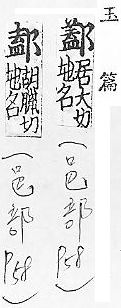 玉篇
居大切
地名
（邑部
P58）
胡臘切
地名
（邑部
P58）